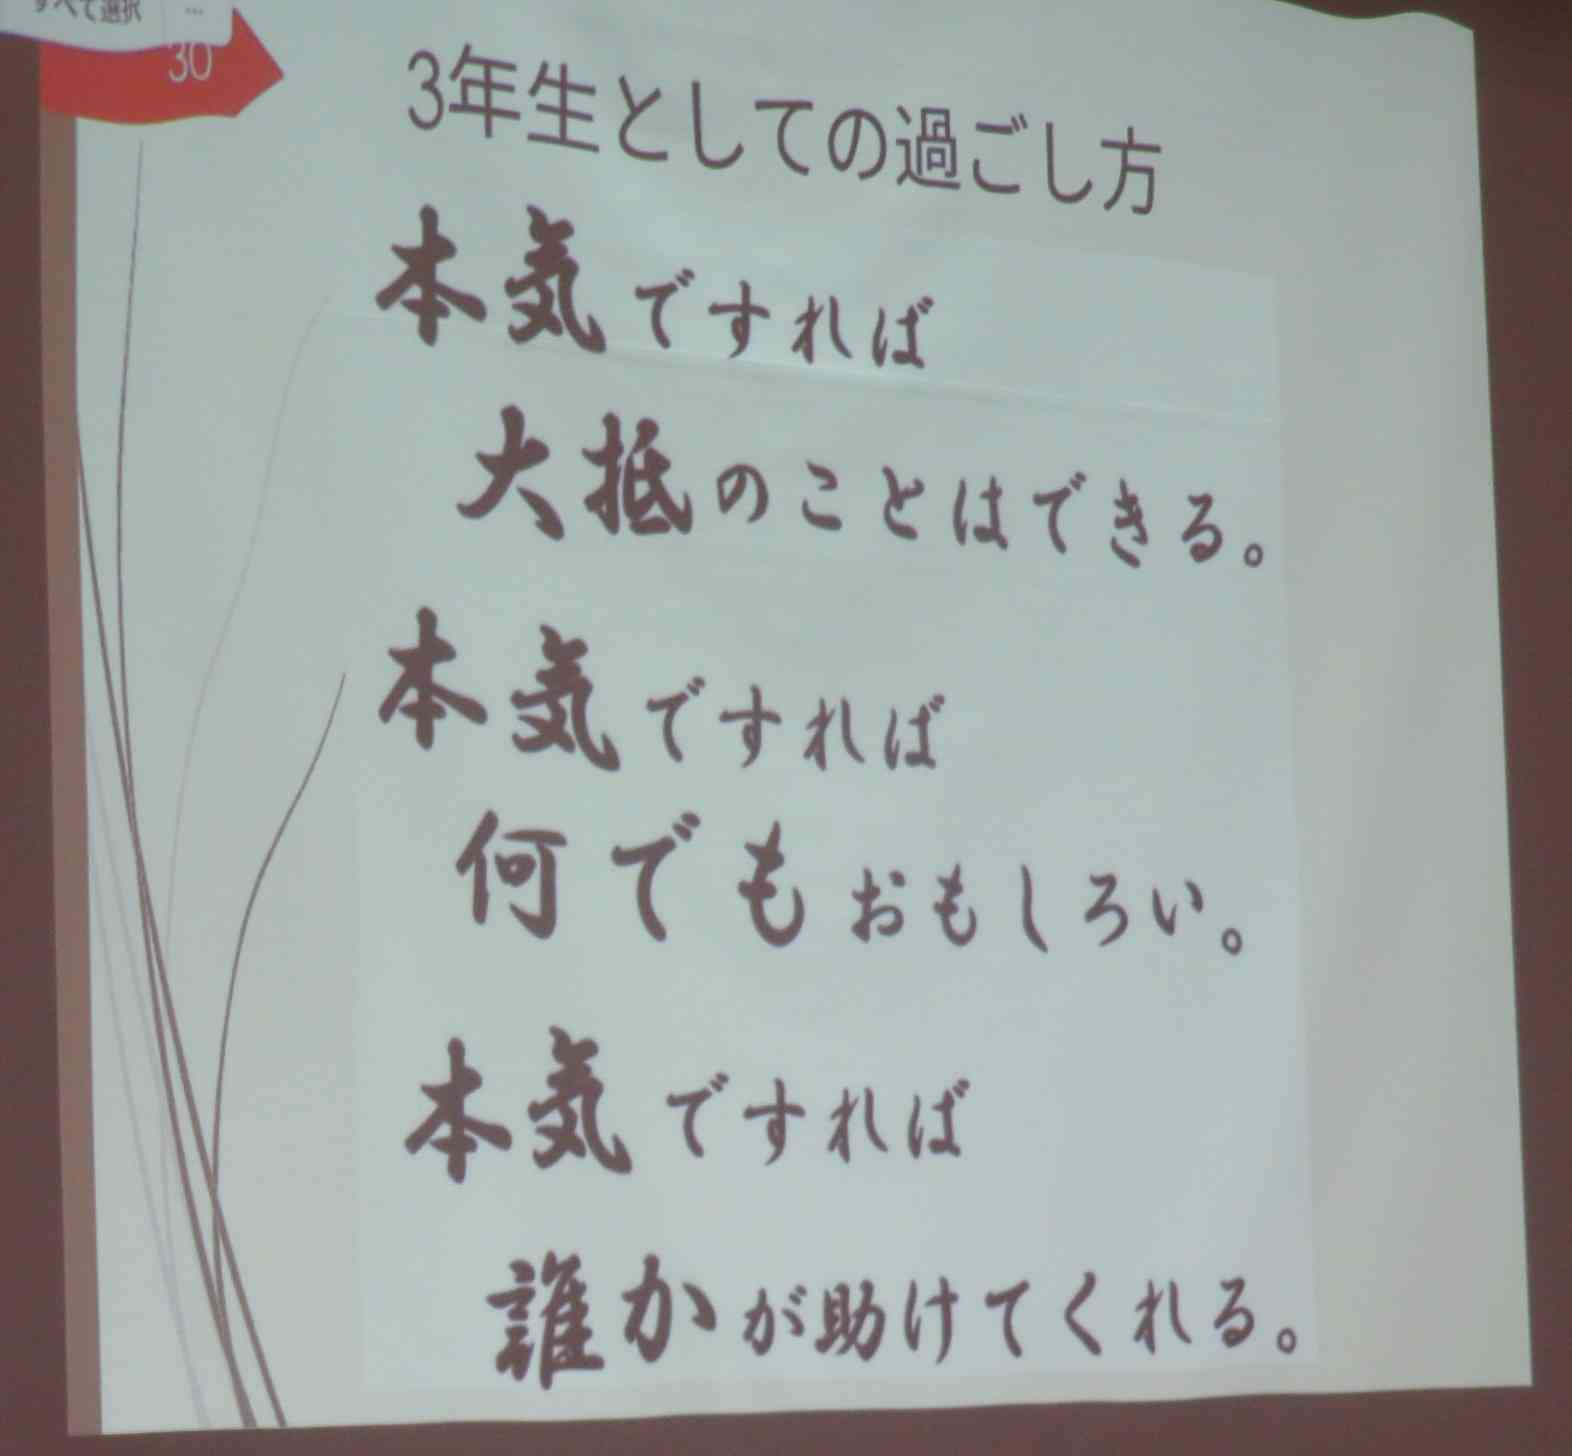 すべて選択 …
30
3年生としての過ごし方
本気ですれば
大抵のことはできる。
本気ですれば
何でもおもしろい。
本気ですれば
誰かが助けてくれる。